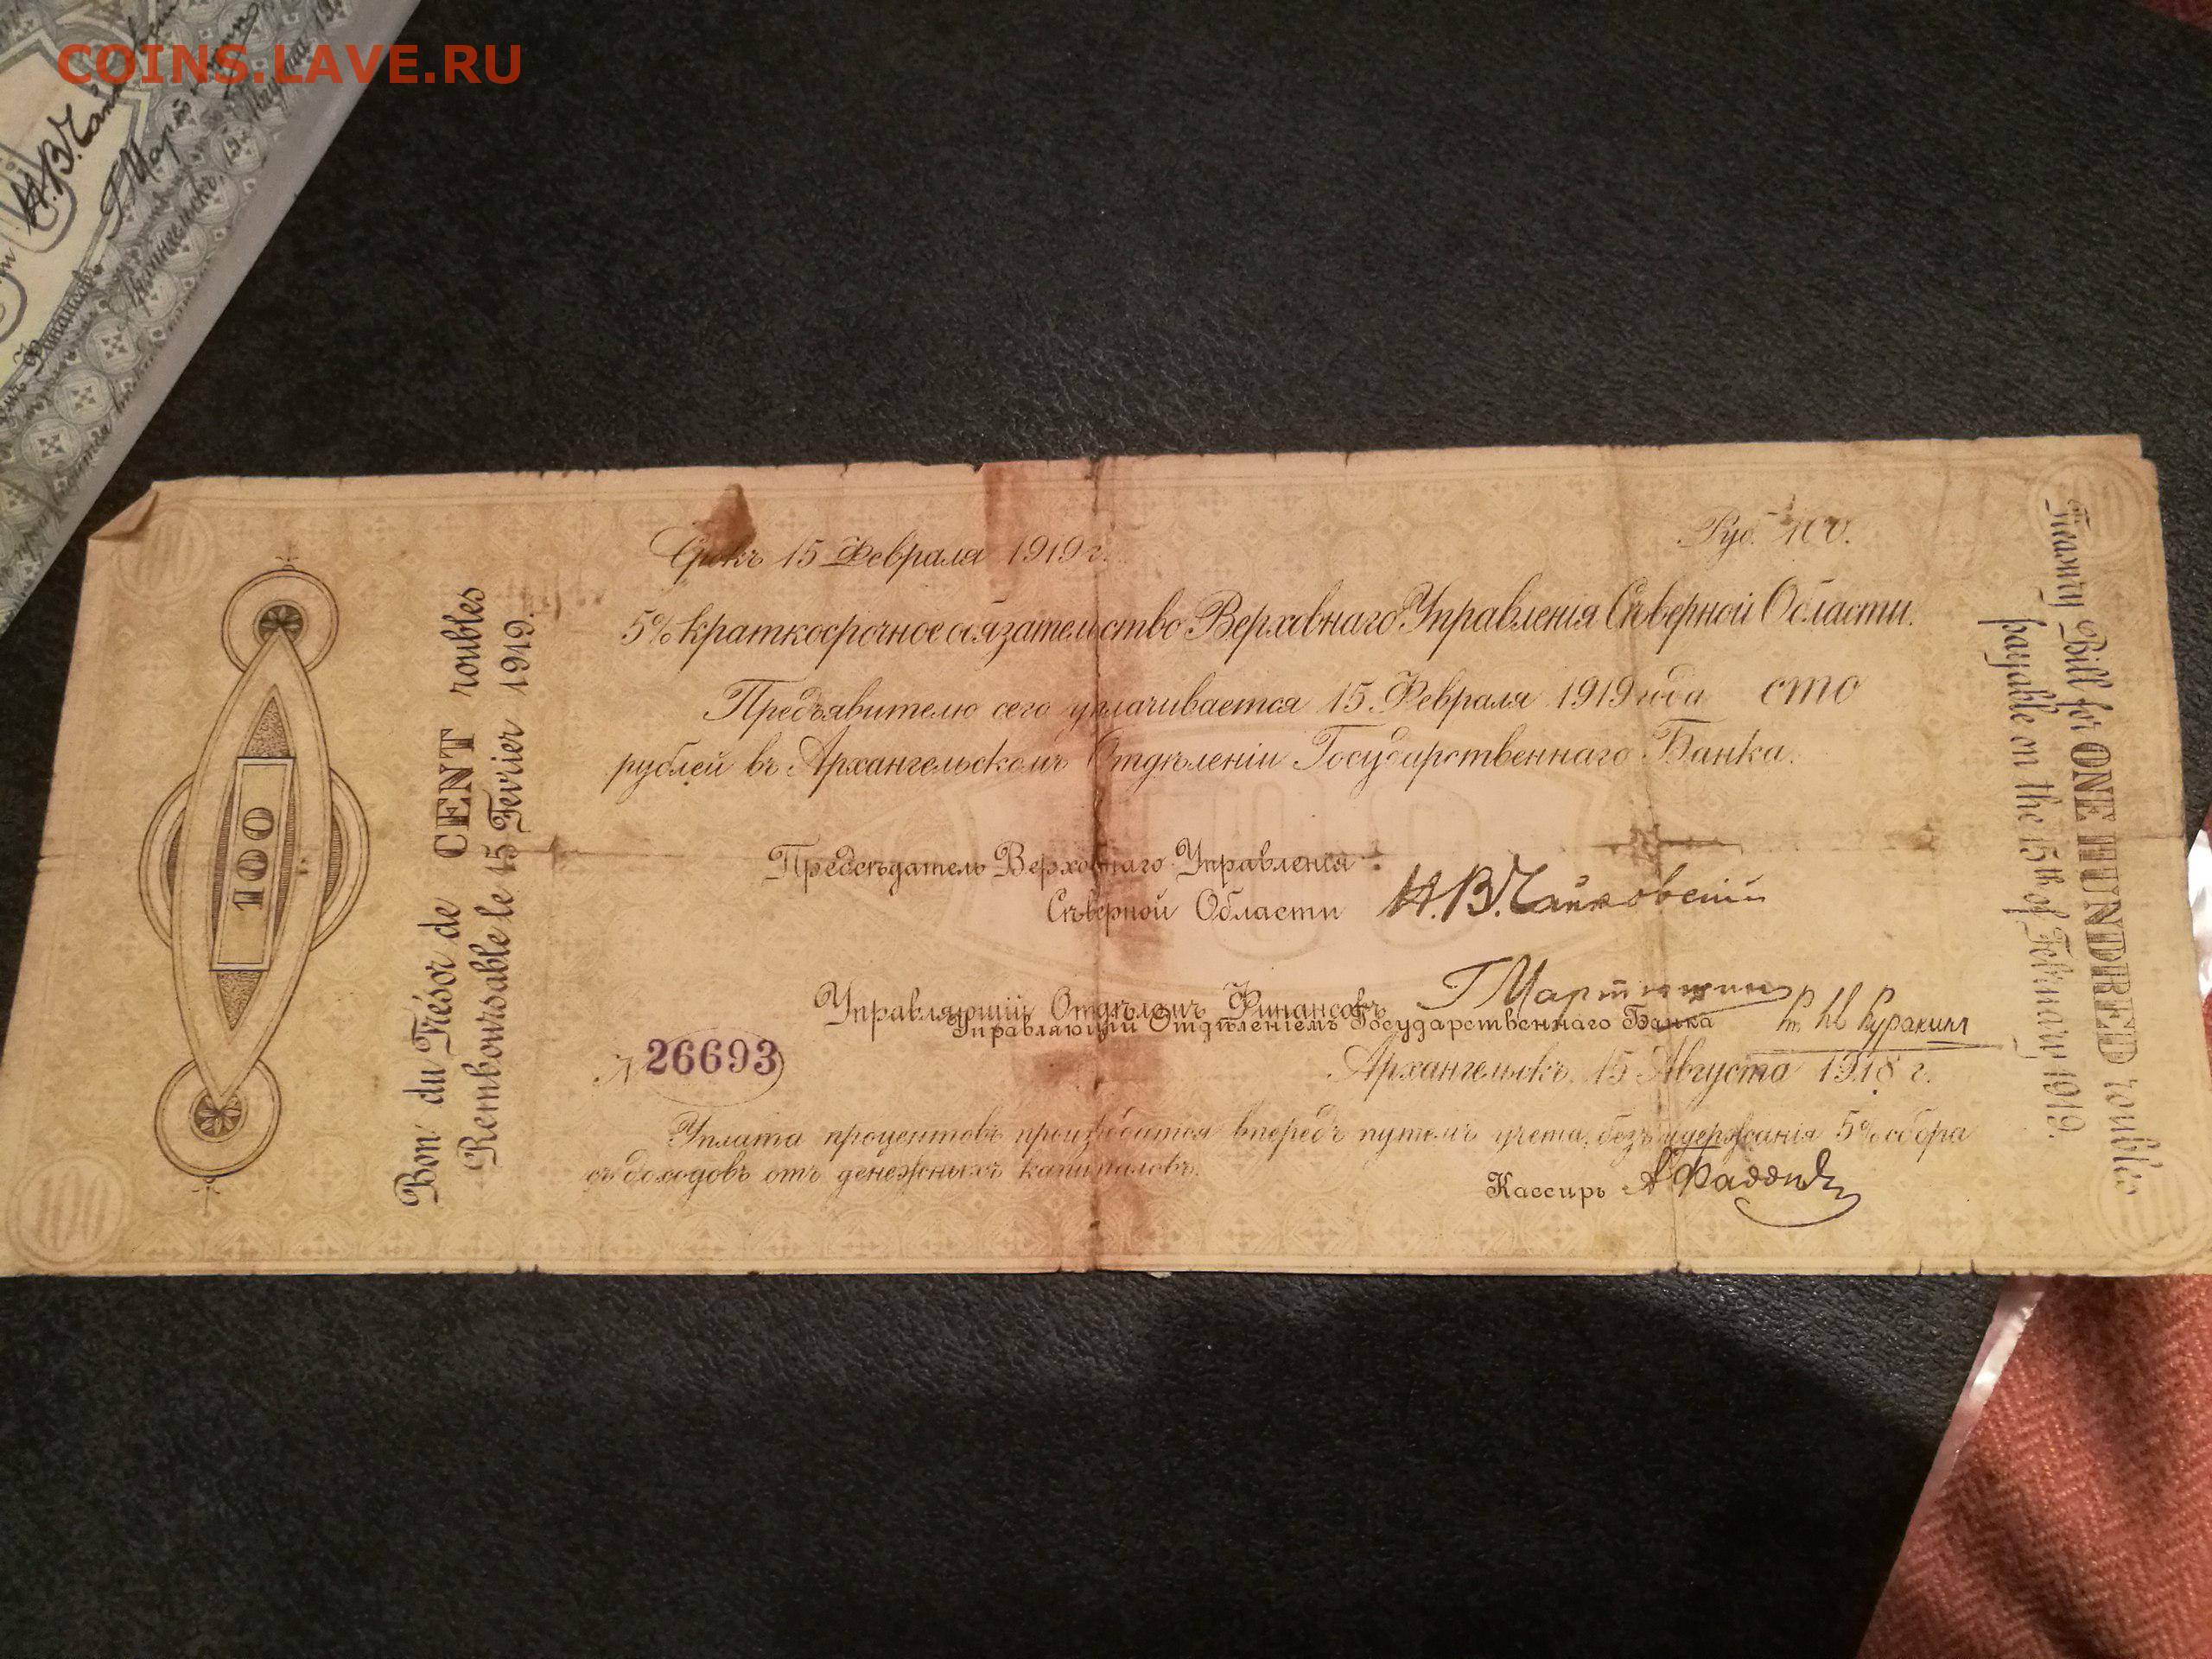 COINS.LAVE.RU
Н.В.Чайк
Финансовъ
100
Bon du Trésor de CENT roubles
Remboursable le 15 Fevrier 1919.
Срокъ 15 Февраля 1919 г.
Руб. 100.
5% краткосрочное обязательство Верховнаго Управленія Сѣверной Области.
Предъявителю сего уплачивается 15 Февраля 1919 года сто
рублей въ Архангельскомъ Отдѣленіи Государственнаго Банка.
100
Предсѣдатель Верховнаго Управленія
Сѣверной Области Н.В.Чайковскій
Управляющій Отдѣломъ Финансовъ Г Мартюшинъ
Управляющій Отдѣленіемъ Государственнаго Банка Куракинъ
№ 26693
Архангельскъ, 15 Августа 1918 г.
Уплата процентовъ производится впередъ путемъ учета, безъ удержанія 5% сбора
съ доходовъ отъ денежныхъ капиталовъ.
Кассиръ
Treasury Bill for ONE HUNDRED roubles
payable on the 15th of February 1919.
100
100
100
100